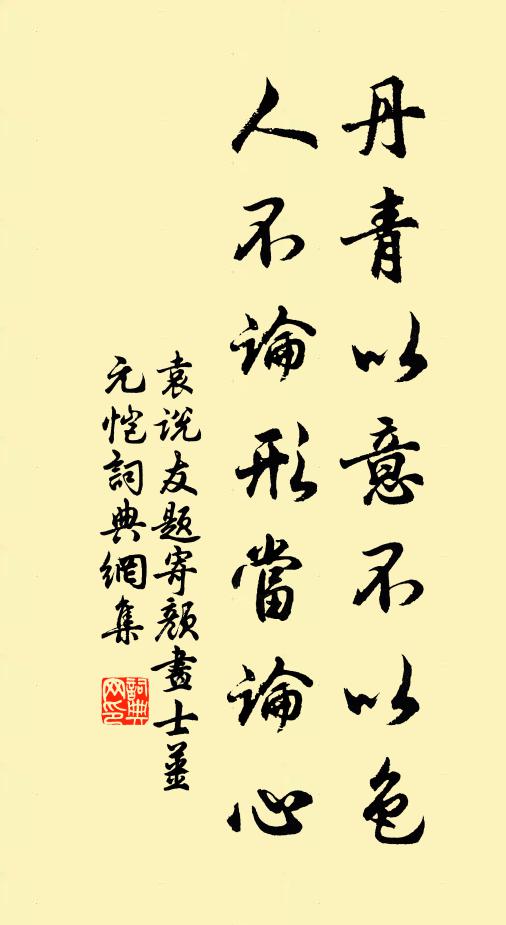 丹青以意不以色
人不論形當論心
袁说友题寄顏畫士並
元愷詞典網集
詞典
网印